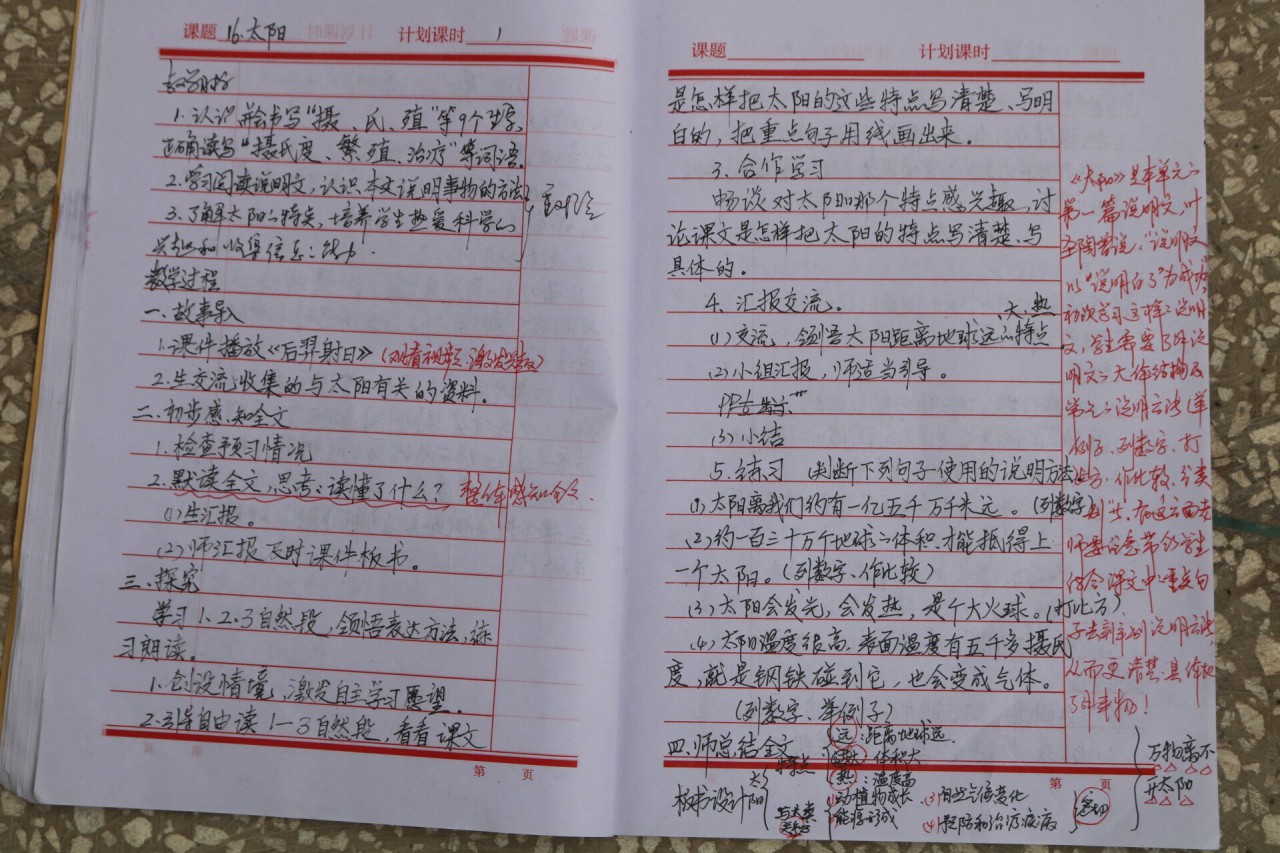 课题 16.太阳 计划课时 1
教学目标
1.认识并会书写“摄、氏、殖”等9个生字,
正确读写“摄氏度、繁殖、治疗”等词语。
2.学习阅读说明文,认识本文说明事物的方法
3.了解太阳的特点,培养学生热爱科学的
兴趣和
教学过程
一.故事导入
1.课件播放《后羿射日》(观看视频 激发兴致)
2.生交流收集的与太阳有关的资料。
二.初步感知全文
1.检查预习情况
2.默读全文,思考:读懂了什么?整体感知全文.
(1)生汇报。
(2)师汇报及时课件板书。
三.探究
学习1.2.3自然段,领悟表达方法,练
习朗读。
1.创设情境,激发自主学习愿望。
2.引导自由读1—3自然段,看看课文
第 页
课题 计划课时
是怎样把太阳的这些特点写清楚、写明
白的,把重点句子用线画出来。
3.合作学习
畅谈对太阳的哪个特点感兴趣,讨
论课文是怎样把太阳的特点写清楚、写
具体的。
4.汇报交流。
(1)交流,领悟太阳距离地球远、大、热的特点
(2)小组汇报,师适当引导。
(3)小结
5.练习 (判断下列句子使用的说明方法)
(1)太阳离我们约有一亿五千万千米远。(列数字)
(2)约一百三十万个地球的体积才能抵得上
一个太阳。(列数字、作比较)
(3)太阳会发光,会发热,是个大火球。(打比方)
(4)太阳温度很高,表面温度有五千多摄氏
度,就是钢铁碰到它,也会变成气体。
(列数字、举例子)
四.师总结全文
《太阳》是本单元的
第一篇说明文,叶
圣陶曾说,“说明文
以‘说明白了’为成功”
初次学习这样的说明
文,学生需要了解说
明文的大体结构及
单元的说明方法(举
例子、列数字、打
比方、作比较、分类
别)等,在这方面老
师要注意带领学生
结合课文中重点句
子去辨别说明方法,
从而更清楚.具体地
了解事物!
第 页
板书设计
太阳
特点
远:距离地球远.
大:体积大
热:温度高
与人类
关系
动植物成长
能源形成
(3)自然气候变化
(4)预防和治疗疾病
密切
万物离不
开太阳